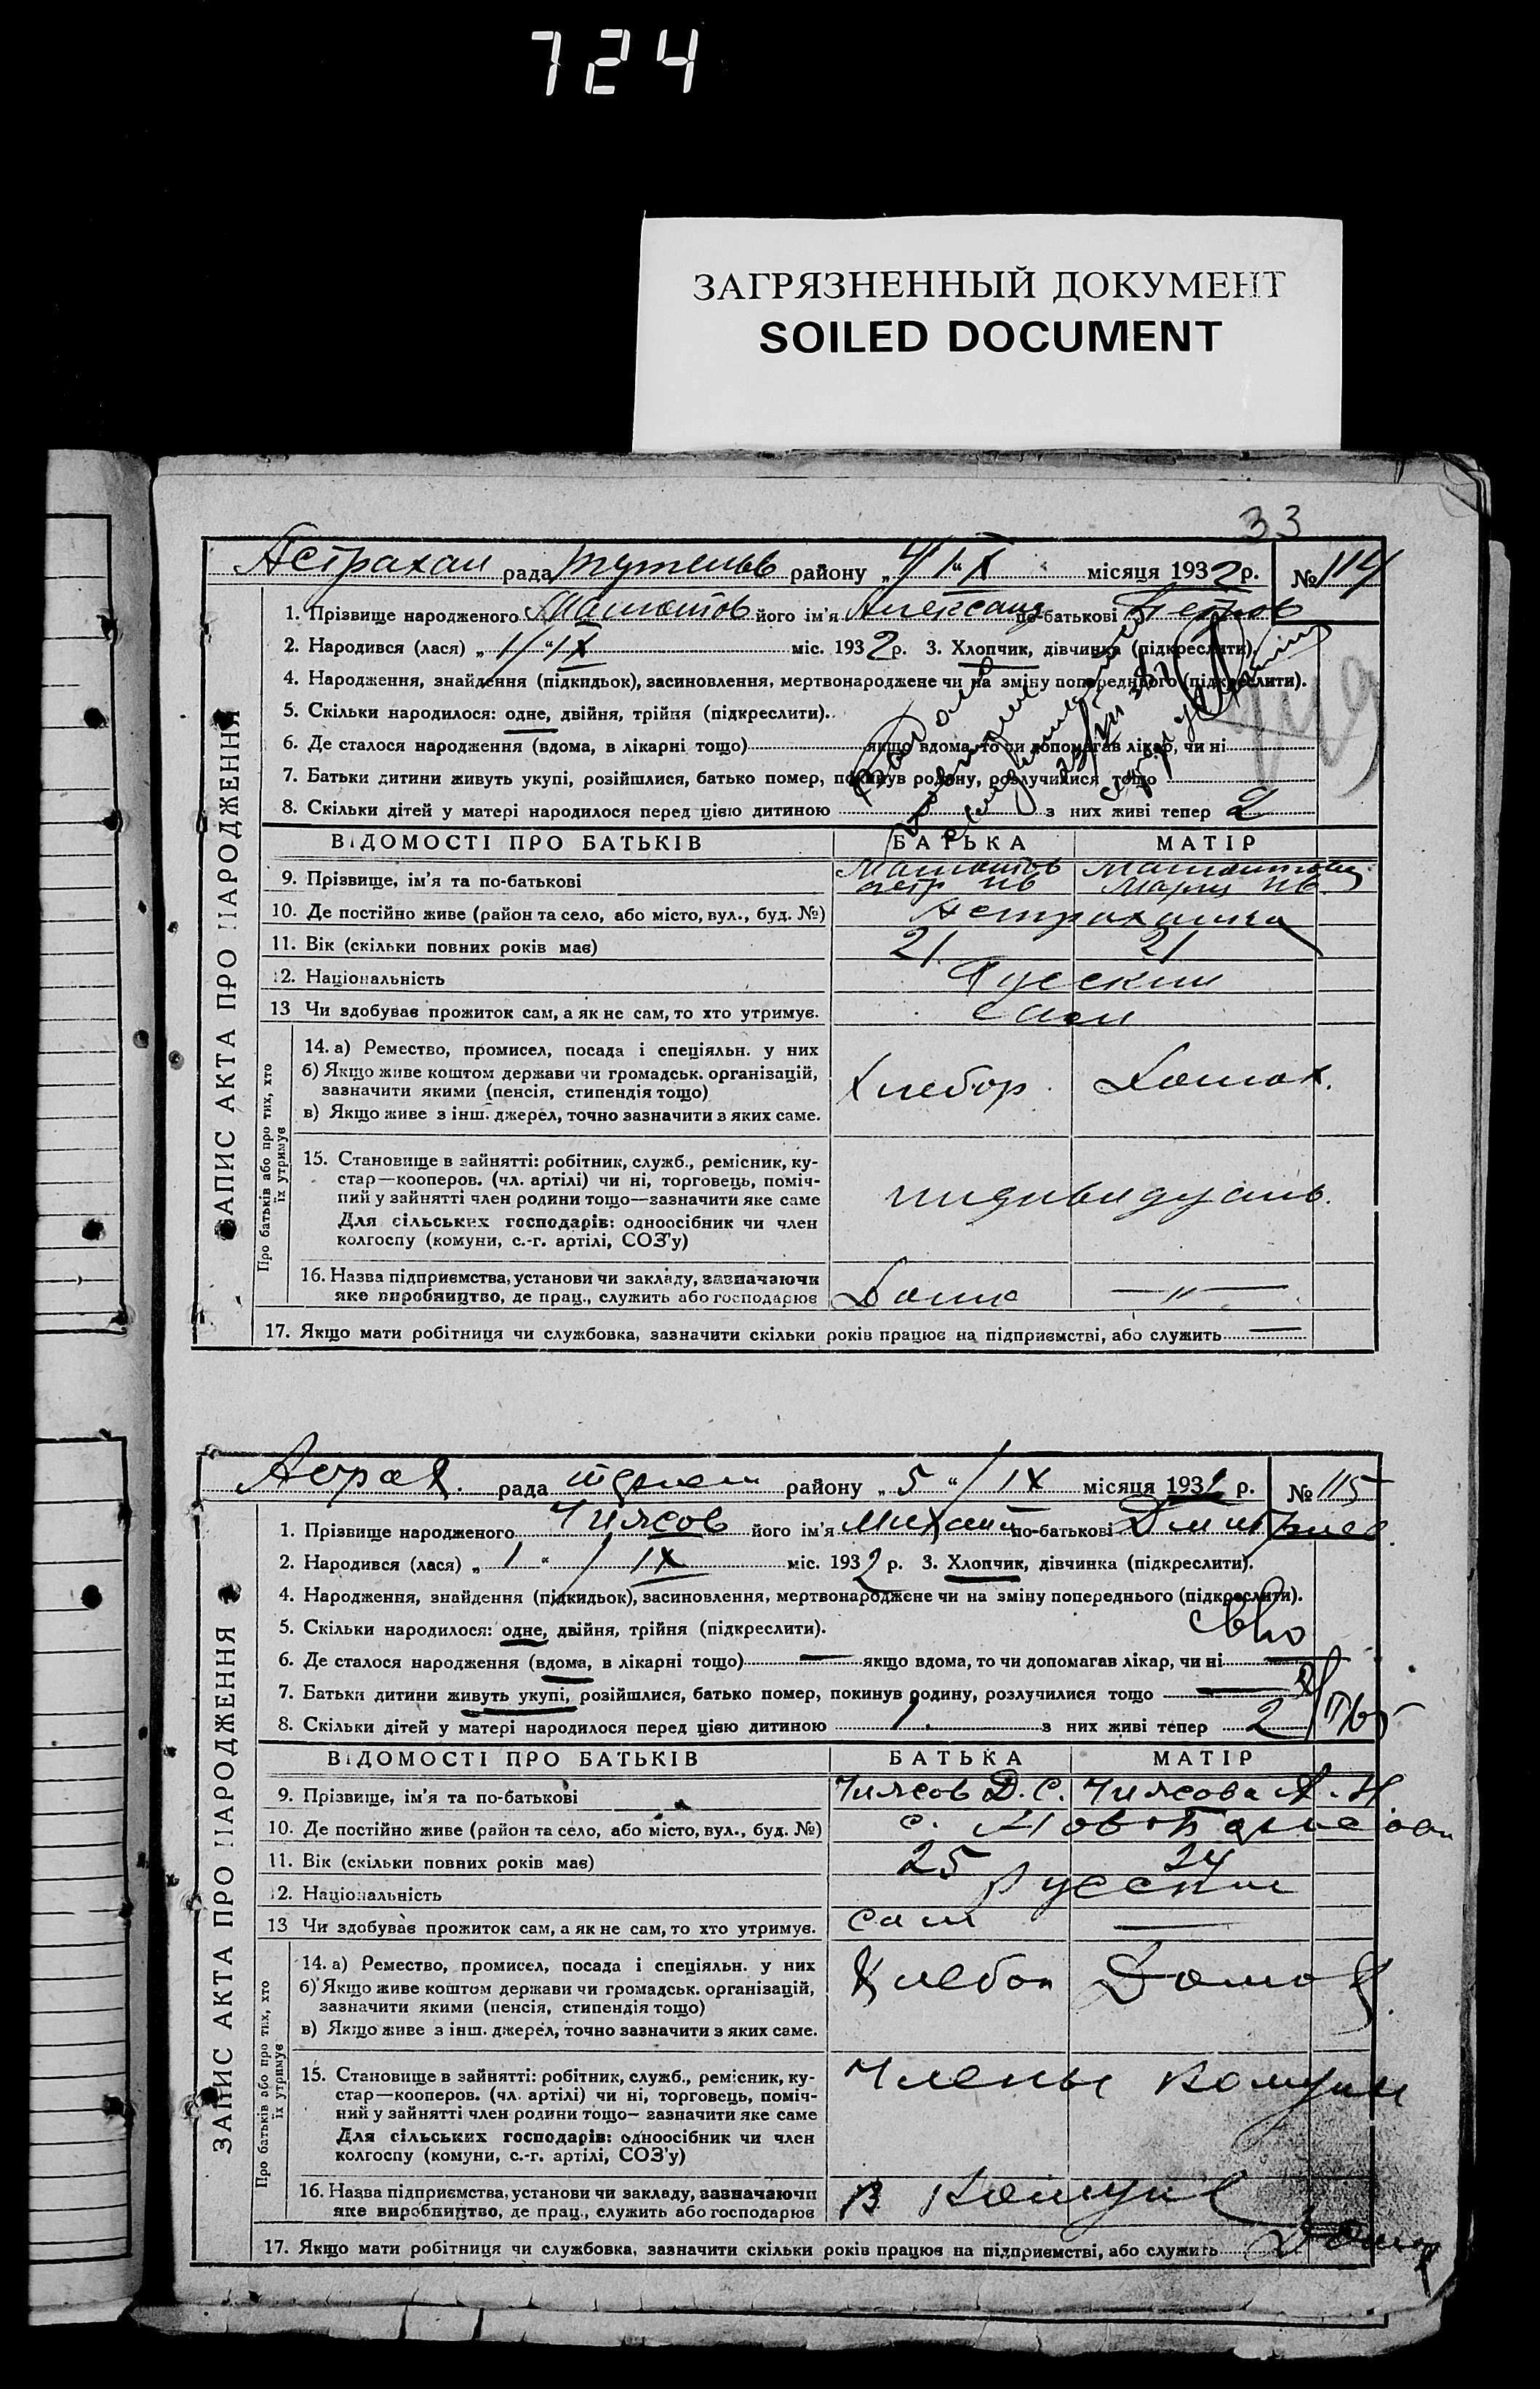 724
ЗАГРЯЗНЕННЫЙ ДОКУМЕНТ
SOILED DOCUMENT
33
Астрахан рада району місяця 1932 р. № 114
1. Прізвище народженого його ім'я Александ по-батькові Петров
2. Народився (лася) „ 1/ " IX міс. 1932 р. 3. Хлопчик, дівчинка (підкреслити).
4. Народження, знайдення (підкидьок), засиновлення, мертвонароджене чи на зміну попереднього (підкреслити).
5. Скільки народилося: одне, двійня, трійня (підкреслити).
6. Де сталося народження (вдома, в лікарні тощо) якщо вдома, то чи допомагав лікар, чи ні
7. Батьки дитини живуть укупі, розійшлися, батько помер, покинув родину, розлучилися тощо
8. Скільки дітей у матері народилося перед цією дитиною з них живі тепер 2
ВІДОМОСТІ ПРО БАТЬКІВ БАТЬКА МАТІР
9. Прізвище, ім'я та по-батькові
10. Де постійно живе (район та село, або місто, вул., буд. №) Астраханка
11. Вік (скільки повних років має) 21 21
12. Національність Русские
13 Чи здобував прожиток сам, а як не сам, то хто утримує. Сами
14. а) Ремество, промисел, посада і спеціяльн. у них
б) Якщо живе коштом держави чи громадськ. організацій,
зазначити якими (пенсія, стипендія тощо)
в) Якщо живе з інш. джерел, точно зазначити з яких саме.
Хлебор. Домох.
15. Становище в зайнятті: робітник, служб., ремісник, ку-
стар—кооперов. (чл. артілі) чи ні, торговець, поміч-
ний у зайнятті член родини тощо—зазначити яке саме
Для сільських господарів: одноосібник чи член
колгоспу (комуни, с.-г. артілі, СОЗ'у)
индивидуаль.
16. Назва підприємства, установи чи закладу, зазначаючи
яке виробництво, де прац., служить або господарює Дома — " —
17. Якщо мати робітниця чи службовка, зазначити скільки років працює на підприємстві, або служить —
ЗАПИС АКТА ПРО НАРОДЖЕННЯ
Про батьків або про тих, хто
їх утримує
рада району „ 5 " / IX місяця 193 р. № 115
1. Прізвище народженого Чиясов його ім'я Михаил по-батькові Дмитриев
2. Народився (лася) „ 1 " / IX міс. 1932 р. 3. Хлопчик, дівчинка (підкреслити).
4. Народження, знайдення (підкидьок), засиновлення, мертвонароджене чи на зміну попереднього (підкреслити).
5. Скільки народилося: одне, двійня, трійня (підкреслити).
6. Де сталося народження (вдома, в лікарні тощо) — якщо вдома, то чи допомагав лікар, чи ні —
7. Батьки дитини живуть укупі, розійшлися, батько помер, покинув родину, розлучилися тощо —
8. Скільки дітей у матері народилося перед цією дитиною 1. з них живі тепер 2
ВІДОМОСТІ ПРО БАТЬКІВ БАТЬКА МАТІР
9. Прізвище, ім'я та по-батькові Чиясов Д. С. Чиясова А. Н
10. Де постійно живе (район та село, або місто, вул., буд. №) с.
11. Вік (скільки повних років має) 25 24
12. Національність Русские
13 Чи здобував прожиток сам, а як не сам, то хто утримує. сам —
14. а) Ремество, промисел, посада і спеціяльн. у них
б) Якщо живе коштом держави чи громадськ. організацій,
зазначити якими (пенсія, стипендія тощо)
в) Якщо живе з інш. джерел, точно зазначити з яких саме.
Хлебор Домох
15. Становище в зайнятті: робітник, служб., ремісник, ку-
стар—кооперов. (чл. артілі) чи ні, торговець, поміч-
ний у зайнятті член родини тощо— зазначити яке саме
Для сільських господарів: одноосібник чи член
колгоспу (комуни, с.-г. артілі, СОЗ'у)
Члены комуни
16. Назва підприємства, установи чи закладу, зазначаючи
яке виробництво, де прац., служить або господарює В Комуне
17. Якщо мати робітниця чи службовка, зазначити скільки років працює на підприємстві, або служить
ЗАПИС АКТА ПРО НАРОДЖЕННЯ
Про батьків або про тих, хто
їх утримує